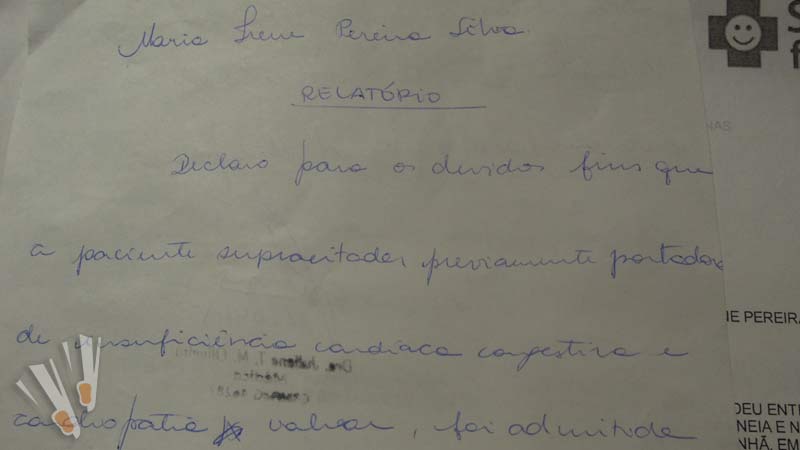 Maria Irene Pereira Silva.
RELATÓRIO
Declaro para os devidos fins que
a paciente supracitada, previamente portadora
de insuficiência cardíaca congestiva e
cardiopatia valvar, foi admitida
S
f
NAS
NE PEREIRA
DEU ENT
NEIA E N
NHÃ, EM
Dra. Juliana T. M. Oliveira
Médica